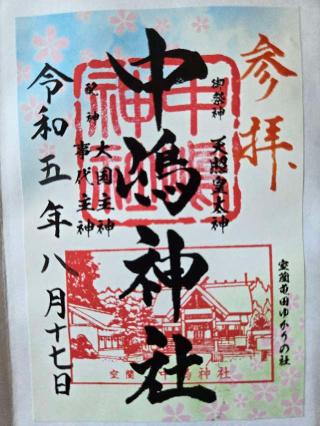 参拝
室蘭亀田ゆかりの社
御祭神 天照皇大神
中嶋神社
配神 大国主神
事代主神
令和五年八月十七日
中嶋神社
室蘭 中嶋神社